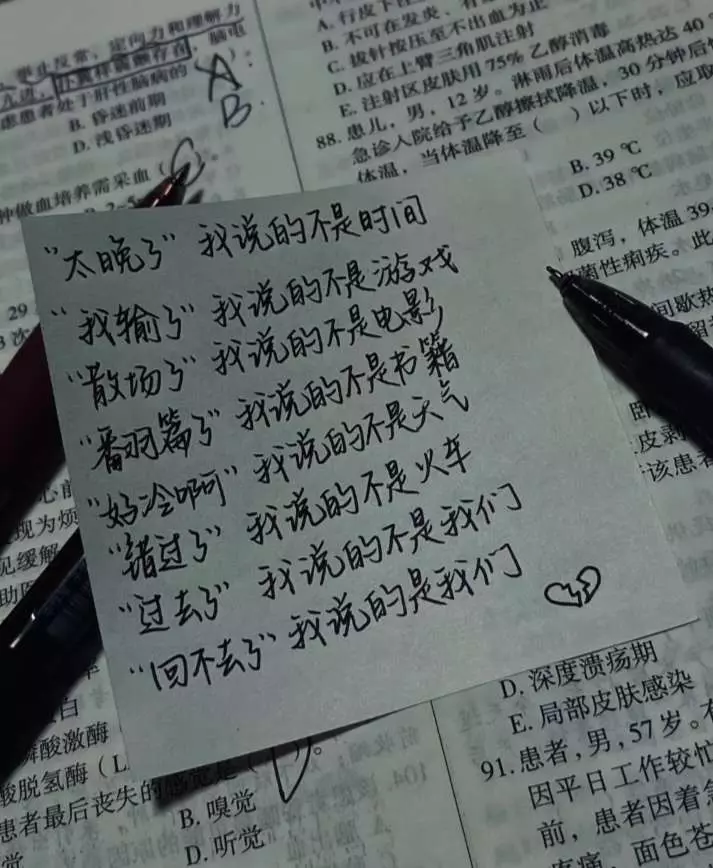 定向力和理解力
脑电
患者处于肝性脑病的
A
B
B. 昏迷前期
D. 浅昏迷期
种做血培养需采血（
B. 不可在发炎、有
C. 拔针按压至不出血为正
D. 应在上臂三角肌注射
E. 注射区皮肤用 75% 乙醇消毒
88. 患儿，男，12 岁。淋雨后体温高热达 40
急诊入院给予乙醇擦拭降温，30 分钟后
体温，当体温降至（ ）以下时，应取
B. 39 ℃
D. 38 ℃
腹泻，体温 39
菌性痢疾。此
间歇热
“太晚了” 我说的不是时间
“我输了” 我说的不是游戏
“散场了” 我说的不是电影
“翻篇了” 我说的不是书籍
“好冷啊” 我说的不是天气
“错过了” 我说的不是火车
“过去了” 我说的不是我们
“回不去了” 我说的是我们
29
3 次
现为烦
见缓解
皮剥
该患者
蛋白
磷酸激酶
酸脱氢酶（L
患者最后丧失的感觉是（ ）。
B. 嗅觉
D. 听觉
104.
D. 深度溃疡期
E. 局部皮肤感染
91. 患者，男，57 岁。
因平日工作较忙
前，患者因着急
面色苍